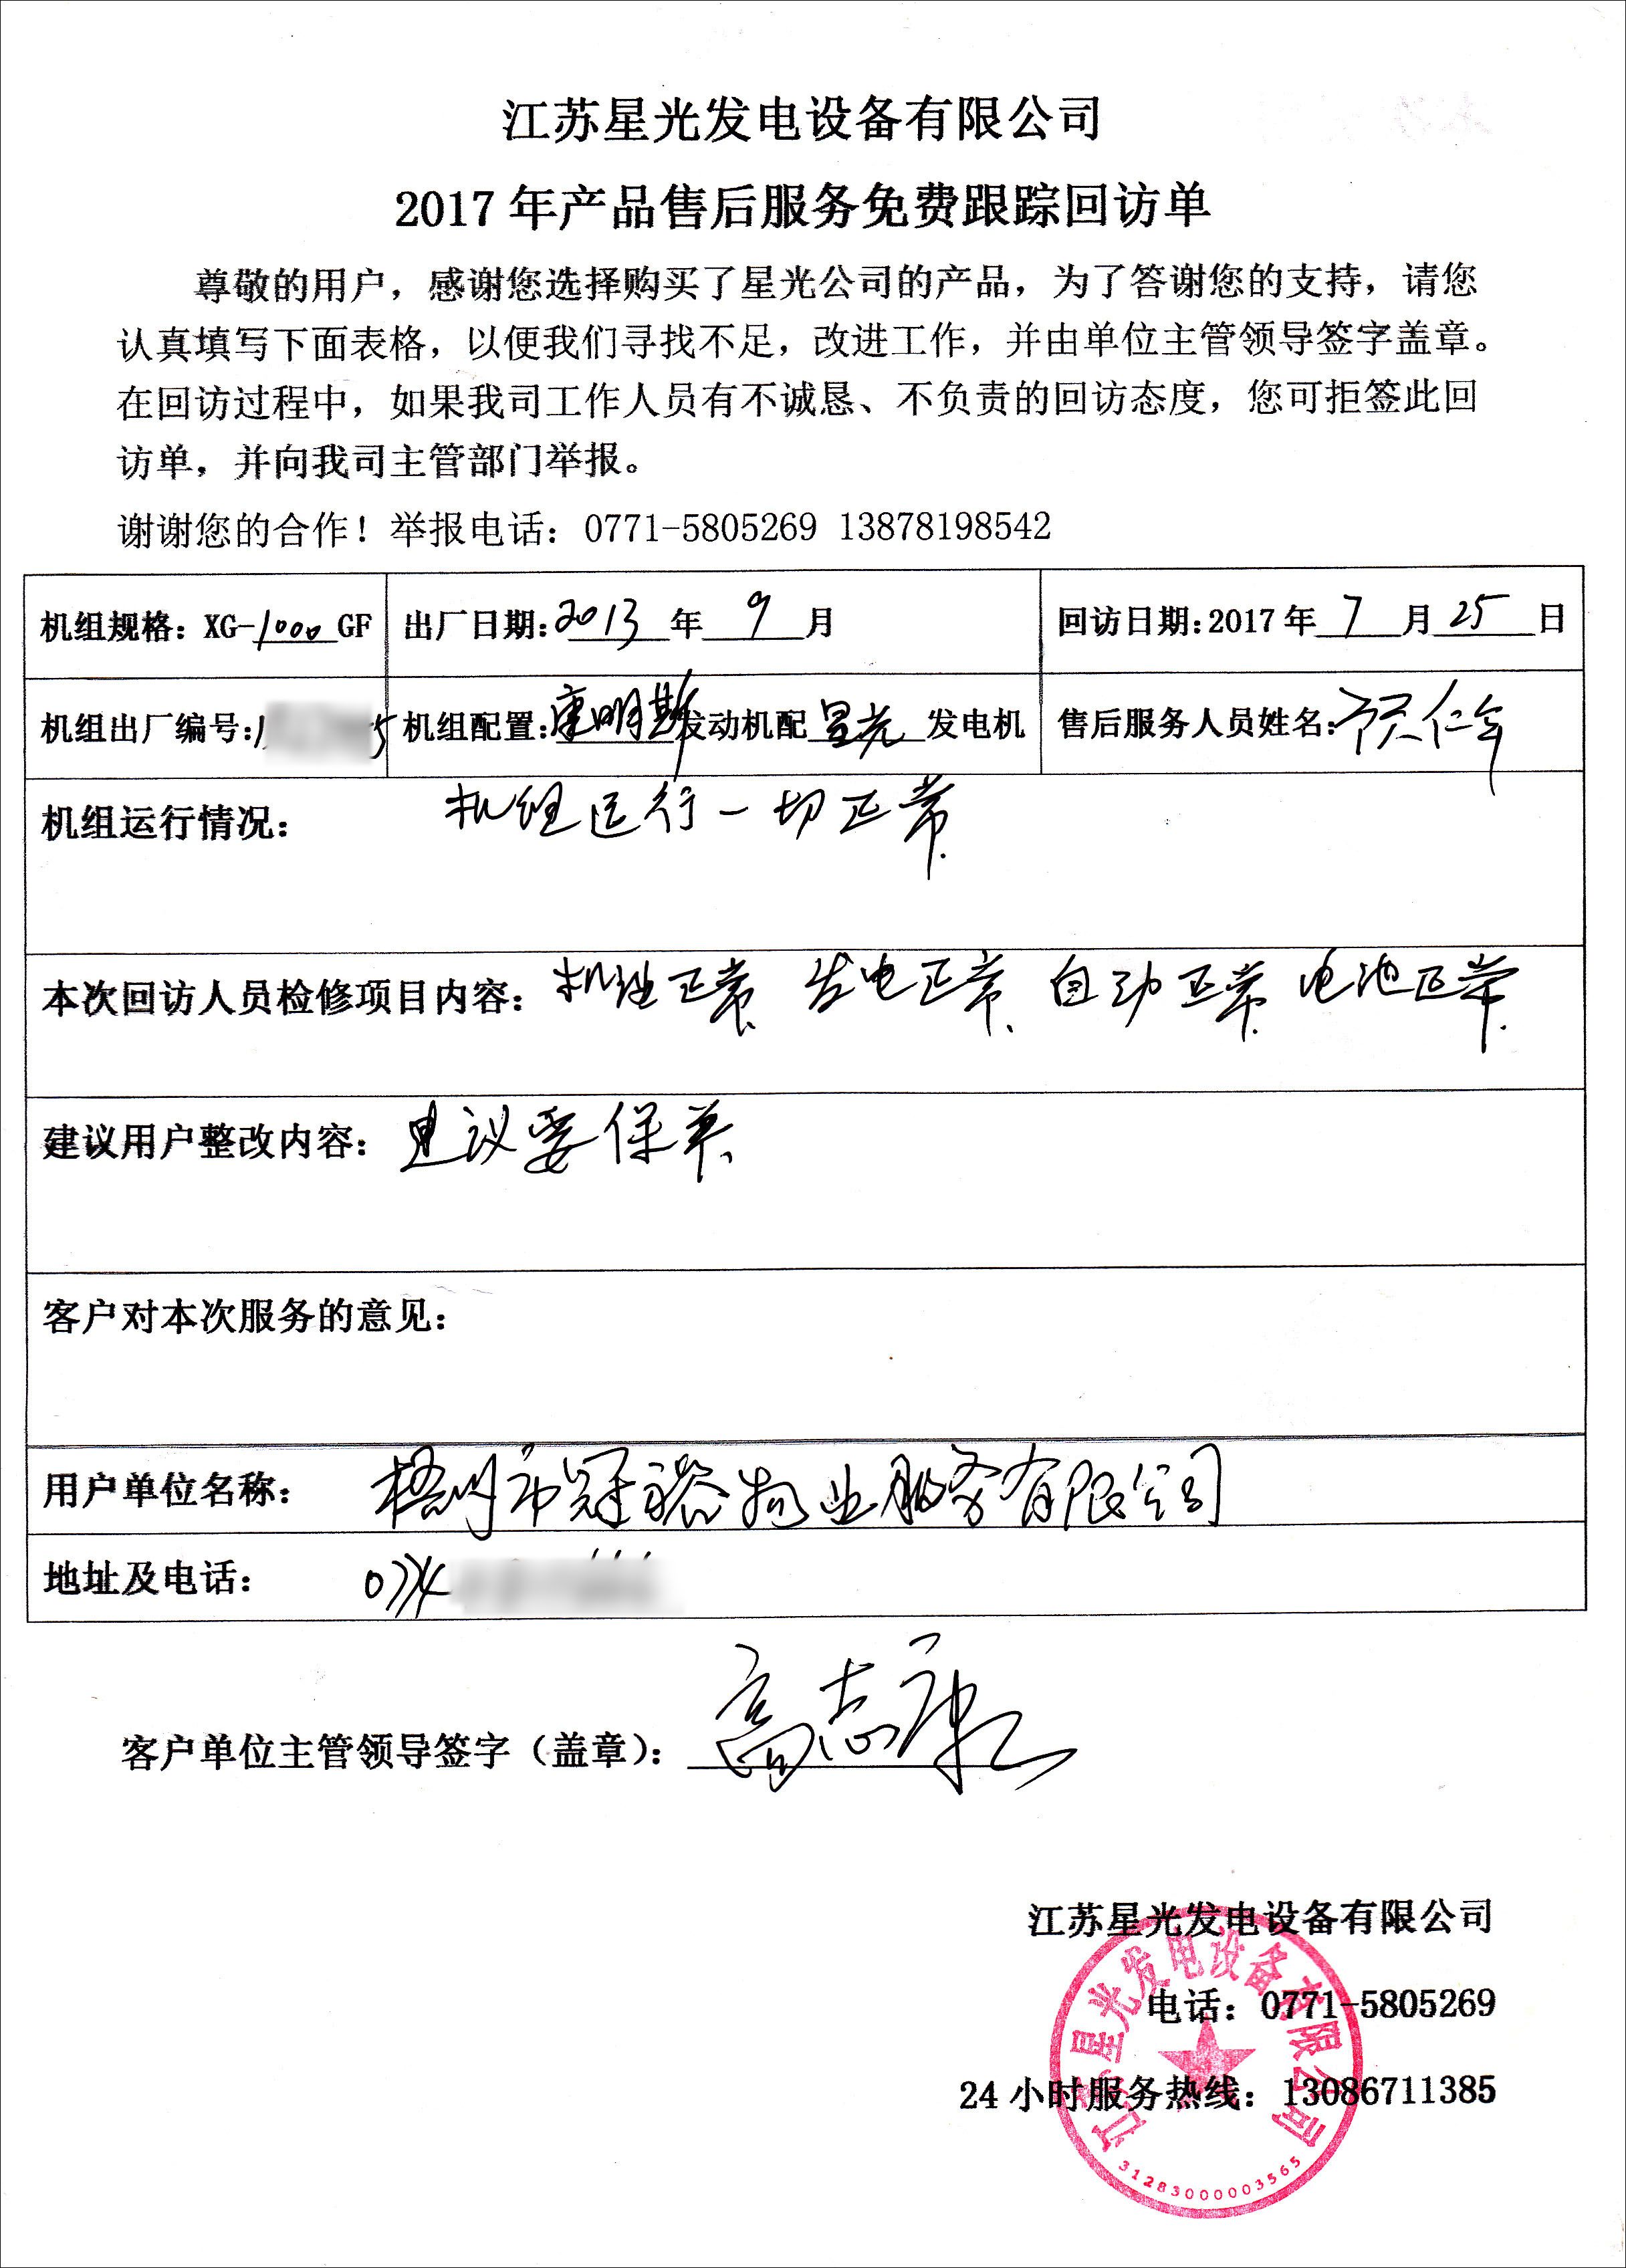 江苏星光发电设备有限公司
2017 年产品售后服务免费跟踪回访单
尊敬的用户，感谢您选择购买了星光公司的产品，为了答谢您的支持，请您
认真填写下面表格，以便我们寻找不足，改进工作，并由单位主管领导签字盖章。
在回访过程中，如果我司工作人员有不诚恳、不负责的回访态度，您可拒签此回
访单，并向我司主管部门举报。
谢谢您的合作！举报电话：0771-5805269 13878198542
机组规格：XG-1000GF 出厂日期：2013 年 9 月 回访日期：2017 年 7 月 25 日
机组出厂编号： 机组配置：康明斯发动机配 星光 发电机 售后服务人员姓名：
机组运行情况： 机组运行一切正常.
本次回访人员检修项目内容： 机组正常、发电正常、自动正常、电池正常.
建议用户整改内容： 建议要保养、
客户对本次服务的意见：
用户单位名称： 梧州市冠裕物业服务有限公司
地址及电话： 0774
客户单位主管领导签字（盖章）： 高志
江苏星光发电设备有限公司
电话：0771-5805269
24 小时服务热线：13086711385
江苏星光发电设备有限公司
31283000003565